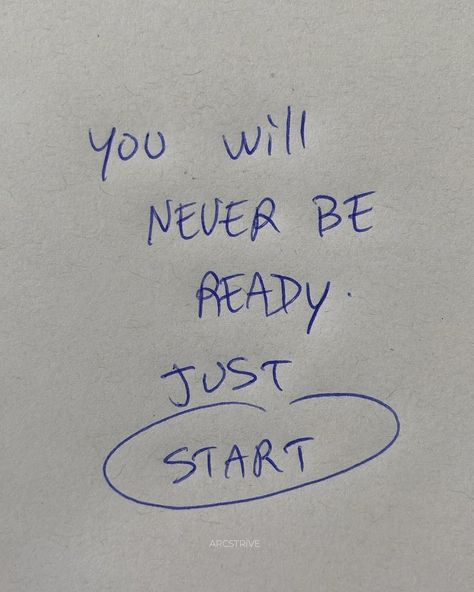 you will
NEVER BE
READY.
JUST
START
ARCSTRIVE